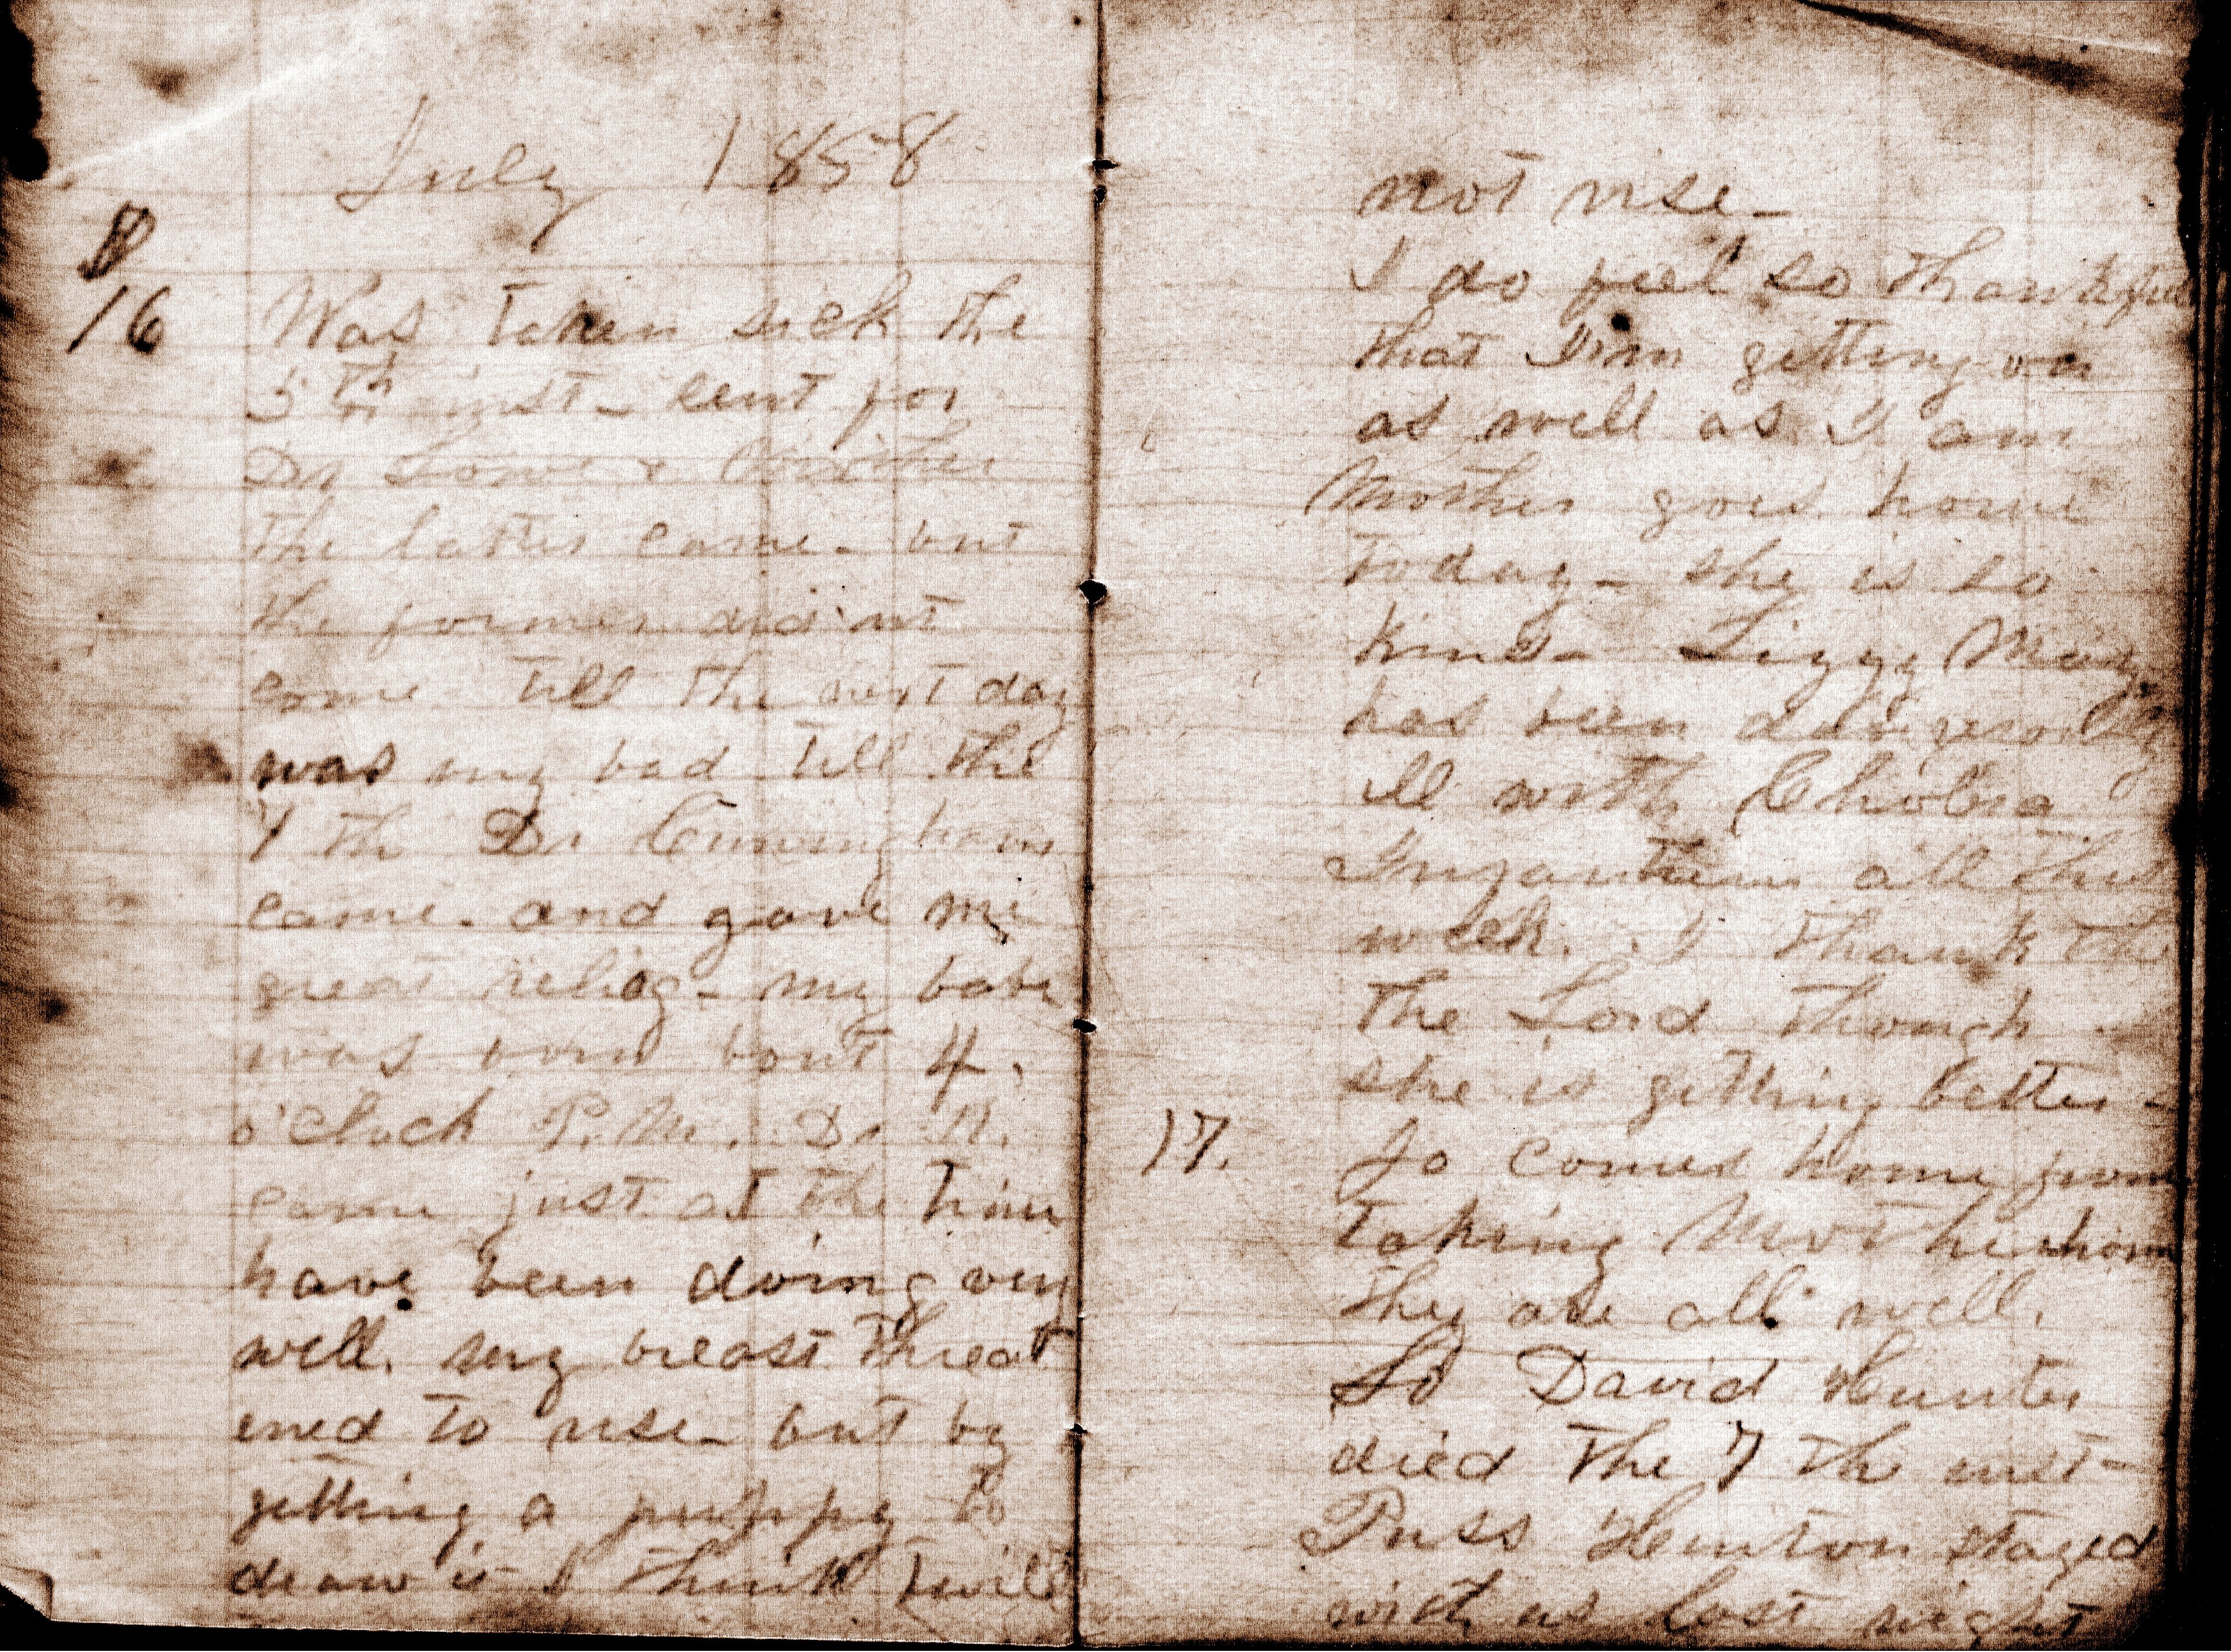 July 1858
16 Was taken sick the
5th inst - sent for
Dr Lowe &
the latter came - but
the former did'nt
come till the next day
was very bad till the
7 th Dr Cunningham
came - and gave me
great relief - my babe
was born bout 4,
o'clock P.M. Dr
came just at the time
have been doing very
well. my breast threat
ened to rise - but by
getting a puppy to
draw it I think twill
not rise -
I do feel so thankful
that I'm getting on
as well as I am
Mother goes home
today - she is so
kind - Lizzy May
has been dangerously
ill with Cholera
Infantum all this
week. I thank the
the Lord though
she is getting better -
17. Jo comes home from
taking Mother home
they are all well.
So David Hunter
died the 7 th inst -
Puss Hunton stayed
with us last night